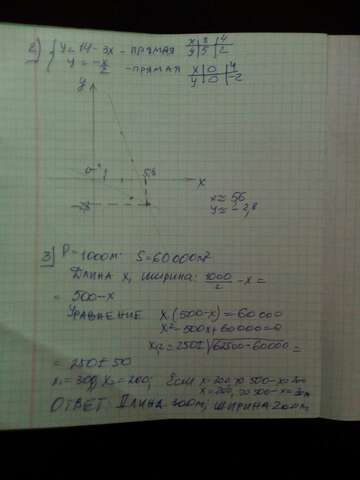 2) { y = 14 - 3x - ПРЯМАЯ x | 3 | 4
y | 5 | 2
y = -x/2 - ПРЯМАЯ x | 0 | 4
y | 0 | -2
y
0 1 5,6 x
-2,8
x ≈ 5,6
y ≈ -2,8
3) P = 1000м. S = 60000м²
ДЛИНА x, ШИРИНА: 1000/2 - x =
= 500-x
УРАВНЕНИЕ x(500-x) = 60000
x² - 500x + 60000 = 0
x₁,₂ = 250 ± √62500-60000 =
= 250 ± 50
x₁ = 300, x₂ = 200, Если x = 200, то 500-x = 300
x = 300, то 500-x = 200
ОТВЕТ: ДЛИНА 300м, ШИРИНА 200м,